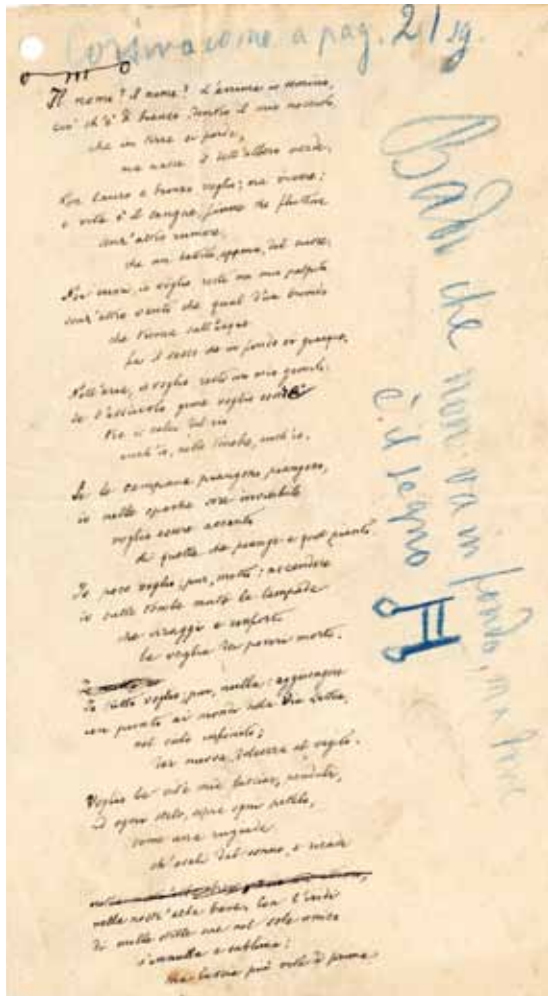 Corsivo come a pag. 21 sg.
Il nome? il nome? L'anima io semino,
ciò ch'è di bianco dentro il mio nocciolo,
che in terra si perde,
ma nasce il bell'albero verde.
Non lauro e bronzo voglio; ma vivere;
e vita è il sangue, fiume che fluttua
senz'altro rumore,
che un battito, appena, del cuore.
Nei cuori, io voglio resti un mio palpito
senz'altro vanto che qual d'un brivido
che trema sull'acque
fa il sasso che in fondo vi giacque.
Nell'aria, io voglio resti un mio gemito:
se l'assiuolo geme voglio essere
tra i salci del rio
anch'io, nelle tenebre, anch'io.
Se le campane piangono piangono,
io nelle opache sere invisibile
voglio essere accanto
di quella che piange a quel pianto.
Io poco voglio; pur, molto: accendere
io sulle tombe mute la lampada
che irraggi e conforti
la veglia dei poveri morti.
Io tutto voglio; pur, nulla: aggiungere
un punto ai mondi della Via Lattea,
nel cielo infinito;
dar nuova dolcezza al vagito.
Voglio la vita mia lasciar, pendula,
ad ogni stelo, sopra ogni petalo,
come una rugiada
ch'esali dal sonno, e ricada
nella nostr'alba breve. Con l'iridi
di mille stille sue nel sole unico
s'annulla e sublima:
ma lascia più vita di prima
Badi che non va in fondo, ma dove
è il segno